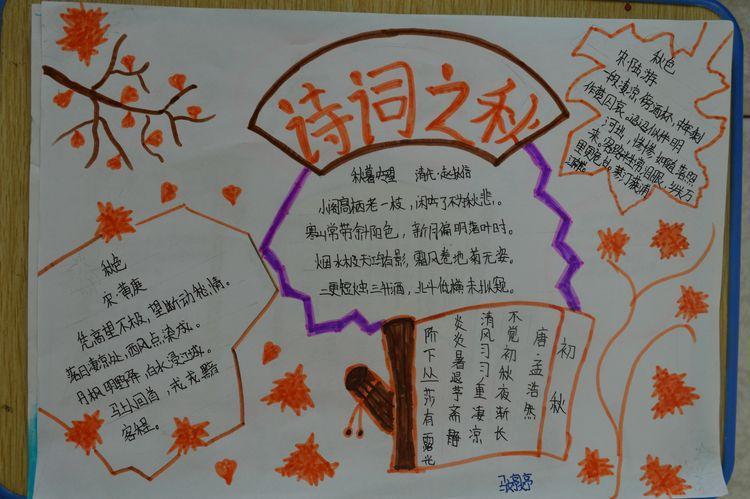 诗词之秋
秋暮吟望 清代·赵执信
小阁高栖老一枝，闲吟了不为秋悲。
寒山常带斜阳色，新月偏明落叶时。
烟水极天鸿有影，霜风卷地菊无姿。
二更短烛三升酒，北斗低横未拟窥。
秋色
宋 黄庚
凭高望不极，望断动愁情。
落日凄凉处，西风点染成。
月枫明野驿，白水浸江城。
马上人回首，戎戎黯
客程。
秋色
宋 陆游
初秋
唐·孟浩然
不觉初秋夜渐长
清风习习重凄凉
炎炎暑退茅斋静
阶下丛莎有露光